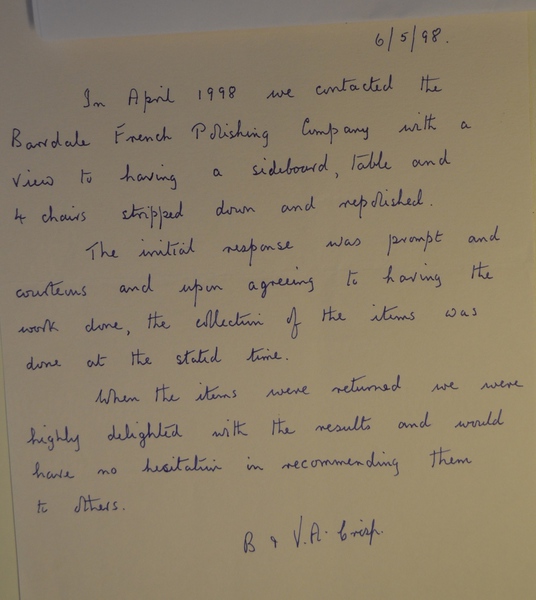 6/5/98.
In April 1998 we contacted the
Barrdale French Polishing Company with a
view to having a sideboard, table and
4 chairs stripped down and repolished.
The initial response was prompt and
courteous and upon agreeing to having the
work done, the collection of the items was
done at the stated time.
When the items were returned we were
highly delighted with the results and would
have no hesitation in recommending them
to others.
B & V.A. Crisp.